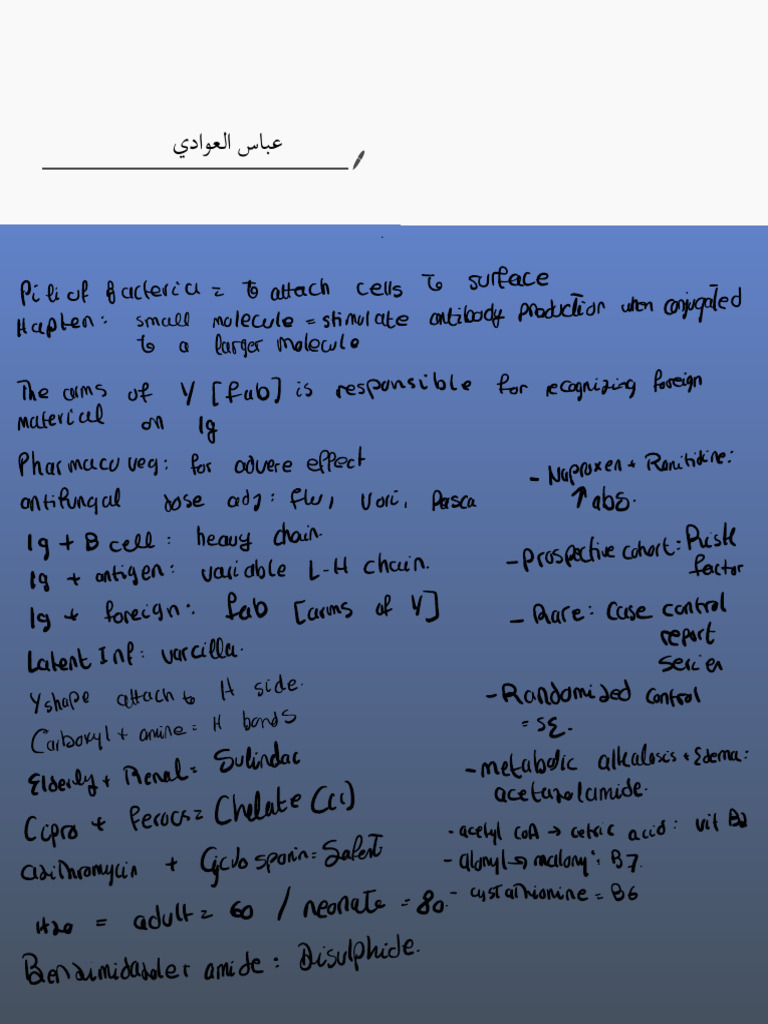 عباس العوادي
Pili of bacteria = to attach cells to surface
Hapten: small molecule = stimulate antibody production when conjugated
to a larger molecule
The arms of Y [fab] is responsible for recognizing foreign
material on Ig
Pharmacoveg: for advere effect
antifungal dose adj: flu, Vori, Posca
Ig + B cell: heavy chain.
Ig + antigen: variable L-H chain.
Ig + foreign: fab [arms of Y]
Latent Inf: varcilla.
Y shape attach to H side.
Carboxyl + amine = H bonds
Elderly + Renal = Sulindac
Cipro + ferocs = Chelate (CI)
azithromycin + Cyclosporin = Safest
H2O = adult = 60 / neonate = 80.
Benzimidazoler amide: Disulphide.
- Naproxen + Ranitidine:
↑ abs.
- Prospective cohort: Risk
factor
- Rare: Case control
report
series
- Randomized control
= SE.
- metabolic alkalosis + Edema:
acetazolamide.
- acetyl coA → cetric acid: vit B2
- alonyl → malony: B7.
- cystathionine = B6